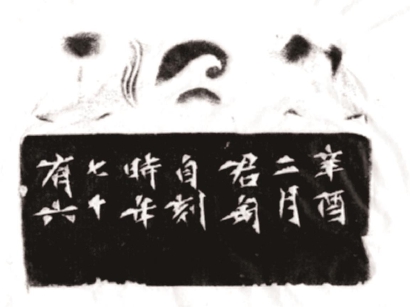 辛酉
二月
君匋
自刻
時年
七十
有六